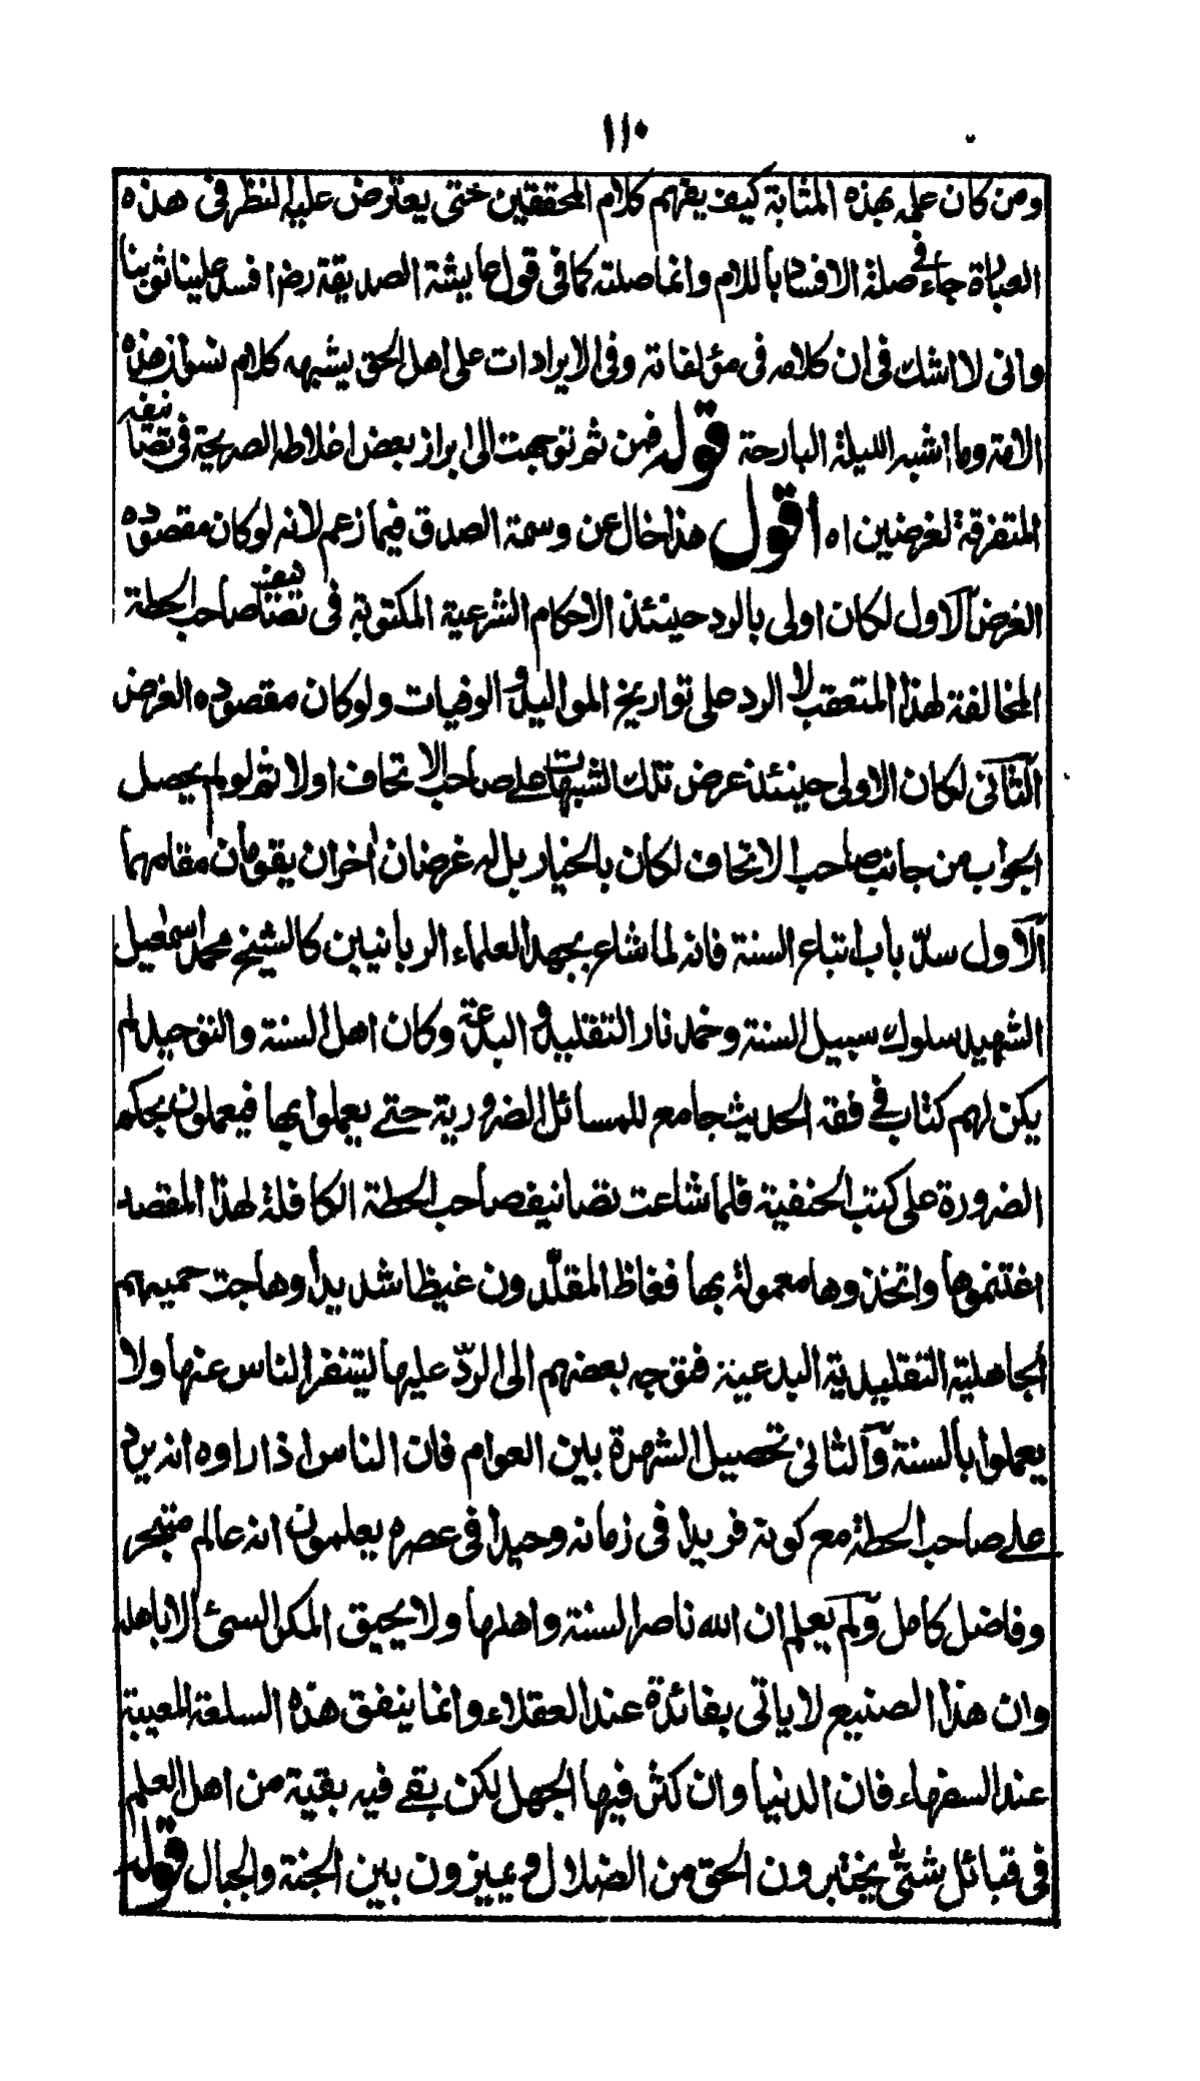 ١١٠
ومن كان علمه بهذه المثابة كيف يفهم كلام المحققين حتى يعترض عليه النظر فى هذه
العبارة جاء فى صلة الافساد باللام وانما صلته كما فى قول عايشة الصديقة رضـ افسد علينا ثوبنا
وانى لا اشك فى ان كلامه فى مؤلفاته وفى الايرادات على اهل الحق يشبهه كلام نسوان هذه
الامة وما اشبه الليلة البارحة قوله فمن ثم توجهت الى ابراز بعض اغلاطه الصريحة فى تصانيفه
المتفرقة لغرضين اه اقول هذا خال عن وسمة الصدق فيما زعم لانه لو كان مقصوده
الغرض الاول لكان اولى بالرد حينئذ الاحكام الشرعية المكتوبة فى تصانيف صاحب الحطة
المخالفة لهذا المتعقب لا الرد على تواريخ المواليد و الوفيات ولو كان مقصوده الغرض
الثانى لكان الاولى حينئذ عرض تلك الشبهات على صاحب الاتحاف اولا ثم لو لم يحصل
الجواب من جانب صاحب الاتحاف لكان بالخيار بل له غرضان اخران يقومان مقامهما
الاول سدّ باب اتباع السنة فانه لما شاع بجهد العلماء الربانيين كالشيخ محمد اسمعيل
الشهيد سلوك سبيل السنة وخمد نار التقليد و البدعة وكان اهل السنة والتوحيد لم
يكن لهم كتاب فے فقه الحديث جامع للمسائل الضرورية حتے يعملوا بها فيعملون بحكم
الضرورة على كتب الحنفية فلما شاعت تصانيف صاحب الحطة الكافلة لهذا المقصد
اغتنموها واتخذوها معمولة بها فغاظ المقلّدون غيظا شديدا وهاجت حميتهم
الجاهلية التقليدية البدعية فتوجه بعضهم الى الردّ عليها ليتنفر الناس عنها ولا
يعملوا بالسنة والثانى تحصيل الشهرة بين العوام فان الناس اذا راوه انه يرد
علے صاحب الحطة مع كونه فريدا فى زمانه وحيدا فى عصره يعلمون انه عالم متبحر
وفاضل كامل ولم يعلم ان الله ناصر السنة واهلها ولا يحيق المكر السىء الا باهله
وان هذا الصنيع لا ياتى بفائدة عند العقلاء وانما ينفق هذه السلعة المعيبة
عند السفهاء فان الدنيا وان كثر فيها الجهل لكن بقے فيه بقية من اهل العلم
فى قبائل شتّى يختبرون الحق من الضلال و يميزون بين الجنة والجبال قوله